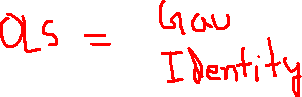 OLS = Gau
Identity